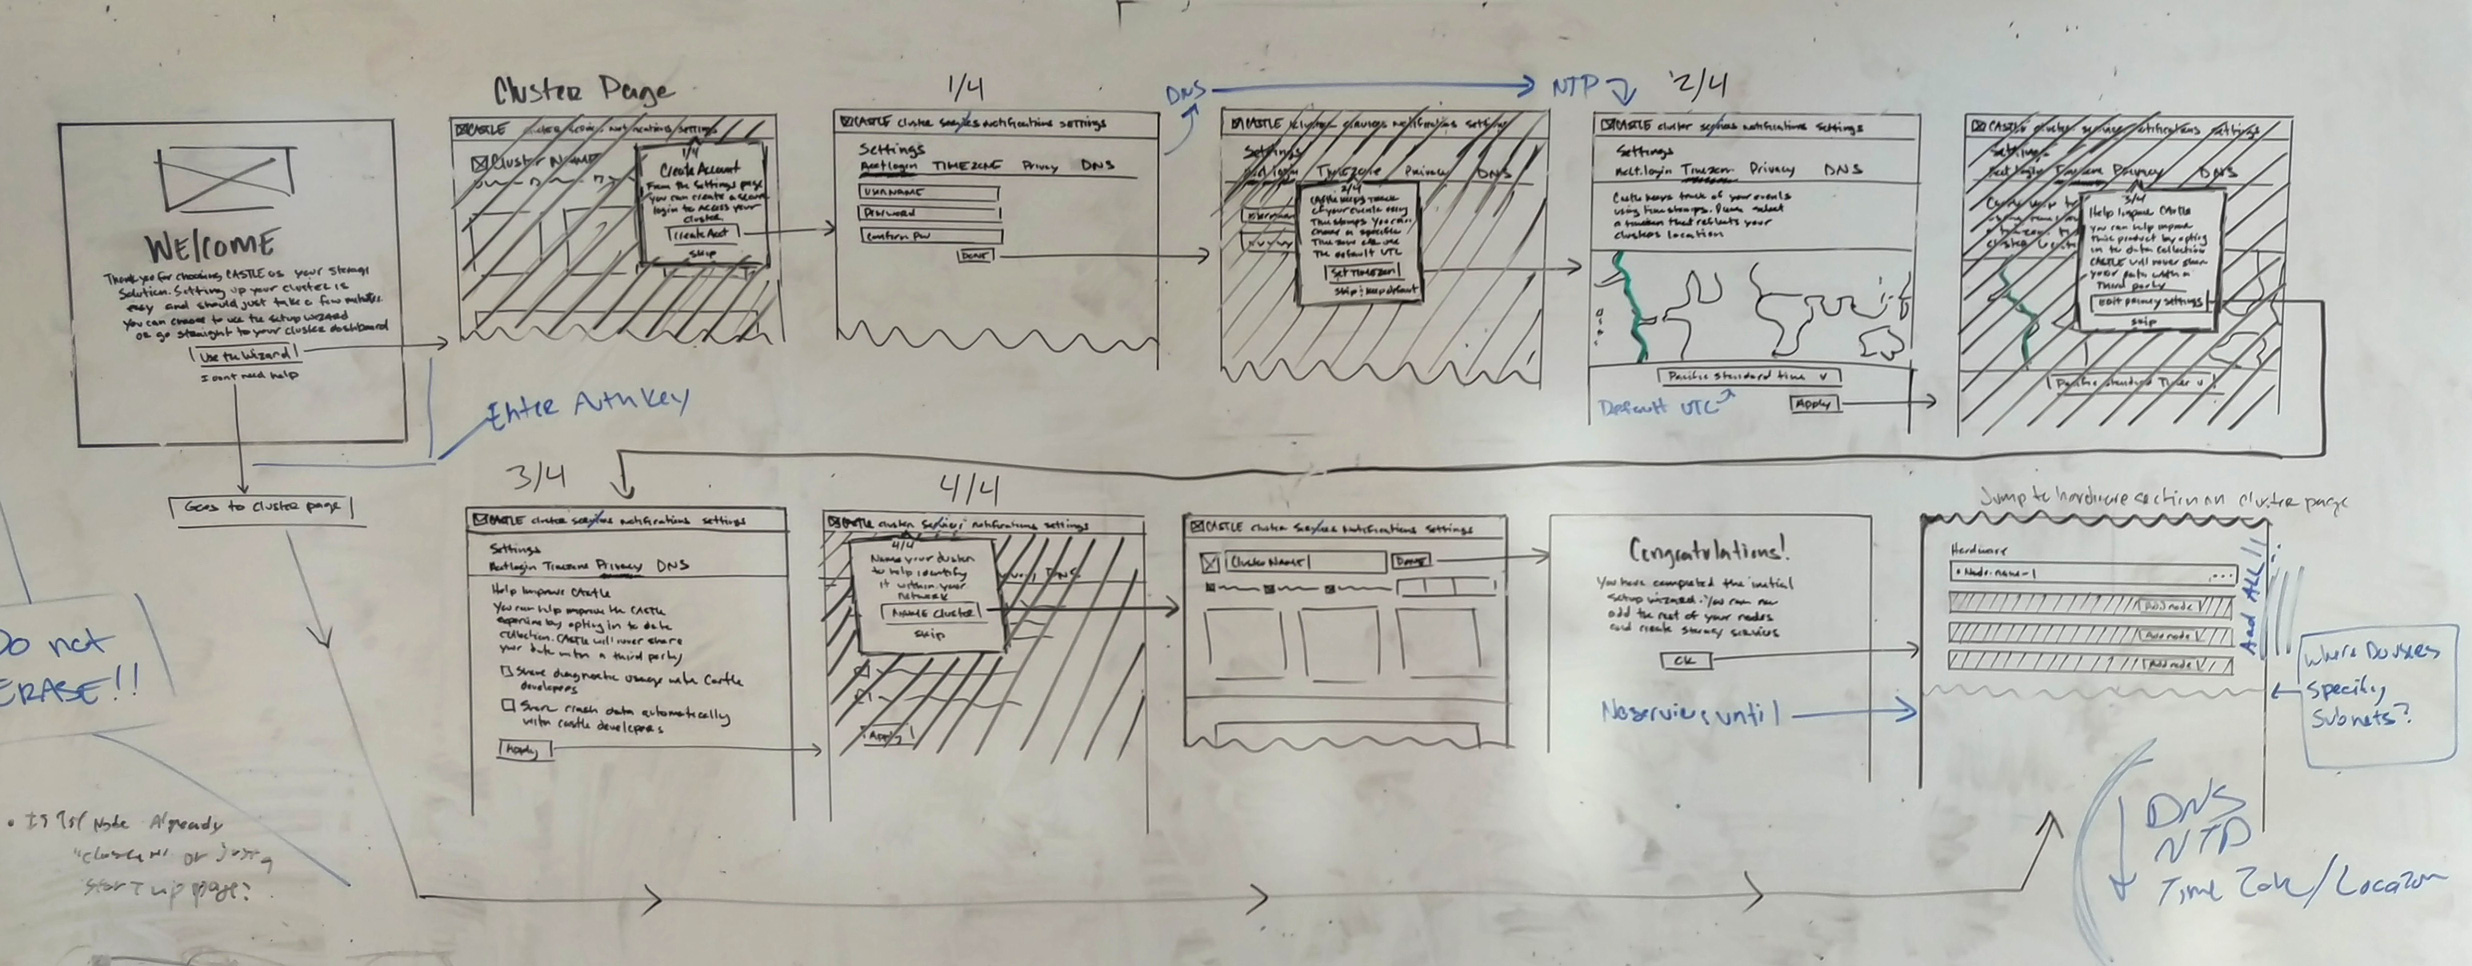 WELCOME
Thank you for choosing CASTLE as your storage
solution. Setting up your cluster is
easy and should just take a few minutes.
you can choose to use the setup wizard
or go straight to your cluster dashboard
Use the Wizard
I dont need help
Goes to cluster page
Enter Auth Key
Cluster Page
CASTLE cluster notifications settings
Cluster Name
1/4
Create Account
From the settings page
you can create a
login to access your
cluster
Create Acct
skip
1/4
CASTLE cluster services notifications settings
Settings
Acct login TIMEZONE Privacy DNS
USERNAME
Password
Confirm PW
DONE
DNS
NTP
CASTLE cluster services notifications settings
Settings
Timezone Privacy DNS
2/4
CASTLE keeps track
of your events using
Timestamps. You can
choose a specific
Timezone or use
The default UTC
Set Timezone
skip & keep default
2/4
CASTLE cluster services notifications settings
Settings
Acct.login Timezone Privacy DNS
Castle keeps track of your events
using timestamps. Please select
a timezone that reflects your
clusters location
Pacific standard time v
Default UTC
Apply
CASTLE cluster services notifications settings
Settings
Acct login Timezone Privacy DNS
3/4
Help Improve CASTLE
you can help improve
this product by opting
in to data collection
CASTLE will never share
your data with a
Third party
Edit privacy settings
skip
Pacific standard Time v
3/4
CASTLE cluster services notifications settings
Settings
Acct login Timezone Privacy DNS
Help improve CASTLE
You can help improve the CASTLE
experience by opting in to data
collection. CASTLE will never share
your data with a third party
Share diagnostic usage with Castle
developers
Share crash data automatically
with castle developers
Apply
4/4
CASTLE cluster services notifications settings
DNS
4/4
Name your cluster
to help identify
it within your
network
NAME CLUSTER
skip
Apply
CASTLE cluster services notifications settings
Cluster NAME
DONE
Congratulations!
You have completed the initial
setup wizard. You can now
add the rest of your nodes
and create storage services
OK
No services until
Jump to hardware section on cluster page
Hardware
Node-name-1 ...
Add node v
Add node v
Add node v
Add All!!
Where Do users
Specify
Subnets?
DNS
NTP
Time Zone/Location
Do not
ERASE!!
Is 1st Node Already
"cluster" or just a
startup page?